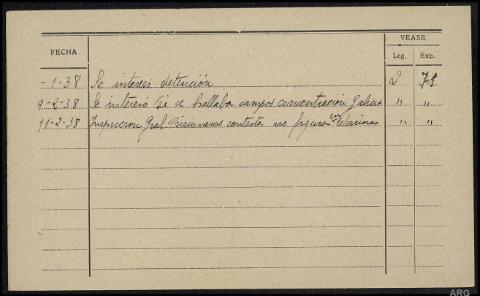 VEASE
FECHA Leg. Exp.
- 1-38 Se interesó detención 2 71
9-2-38 Se interesó si se hallaba campos concentración Galicia " "
11-2-38 Inspección Gral Prisioneros contesta no figura " "
ARG